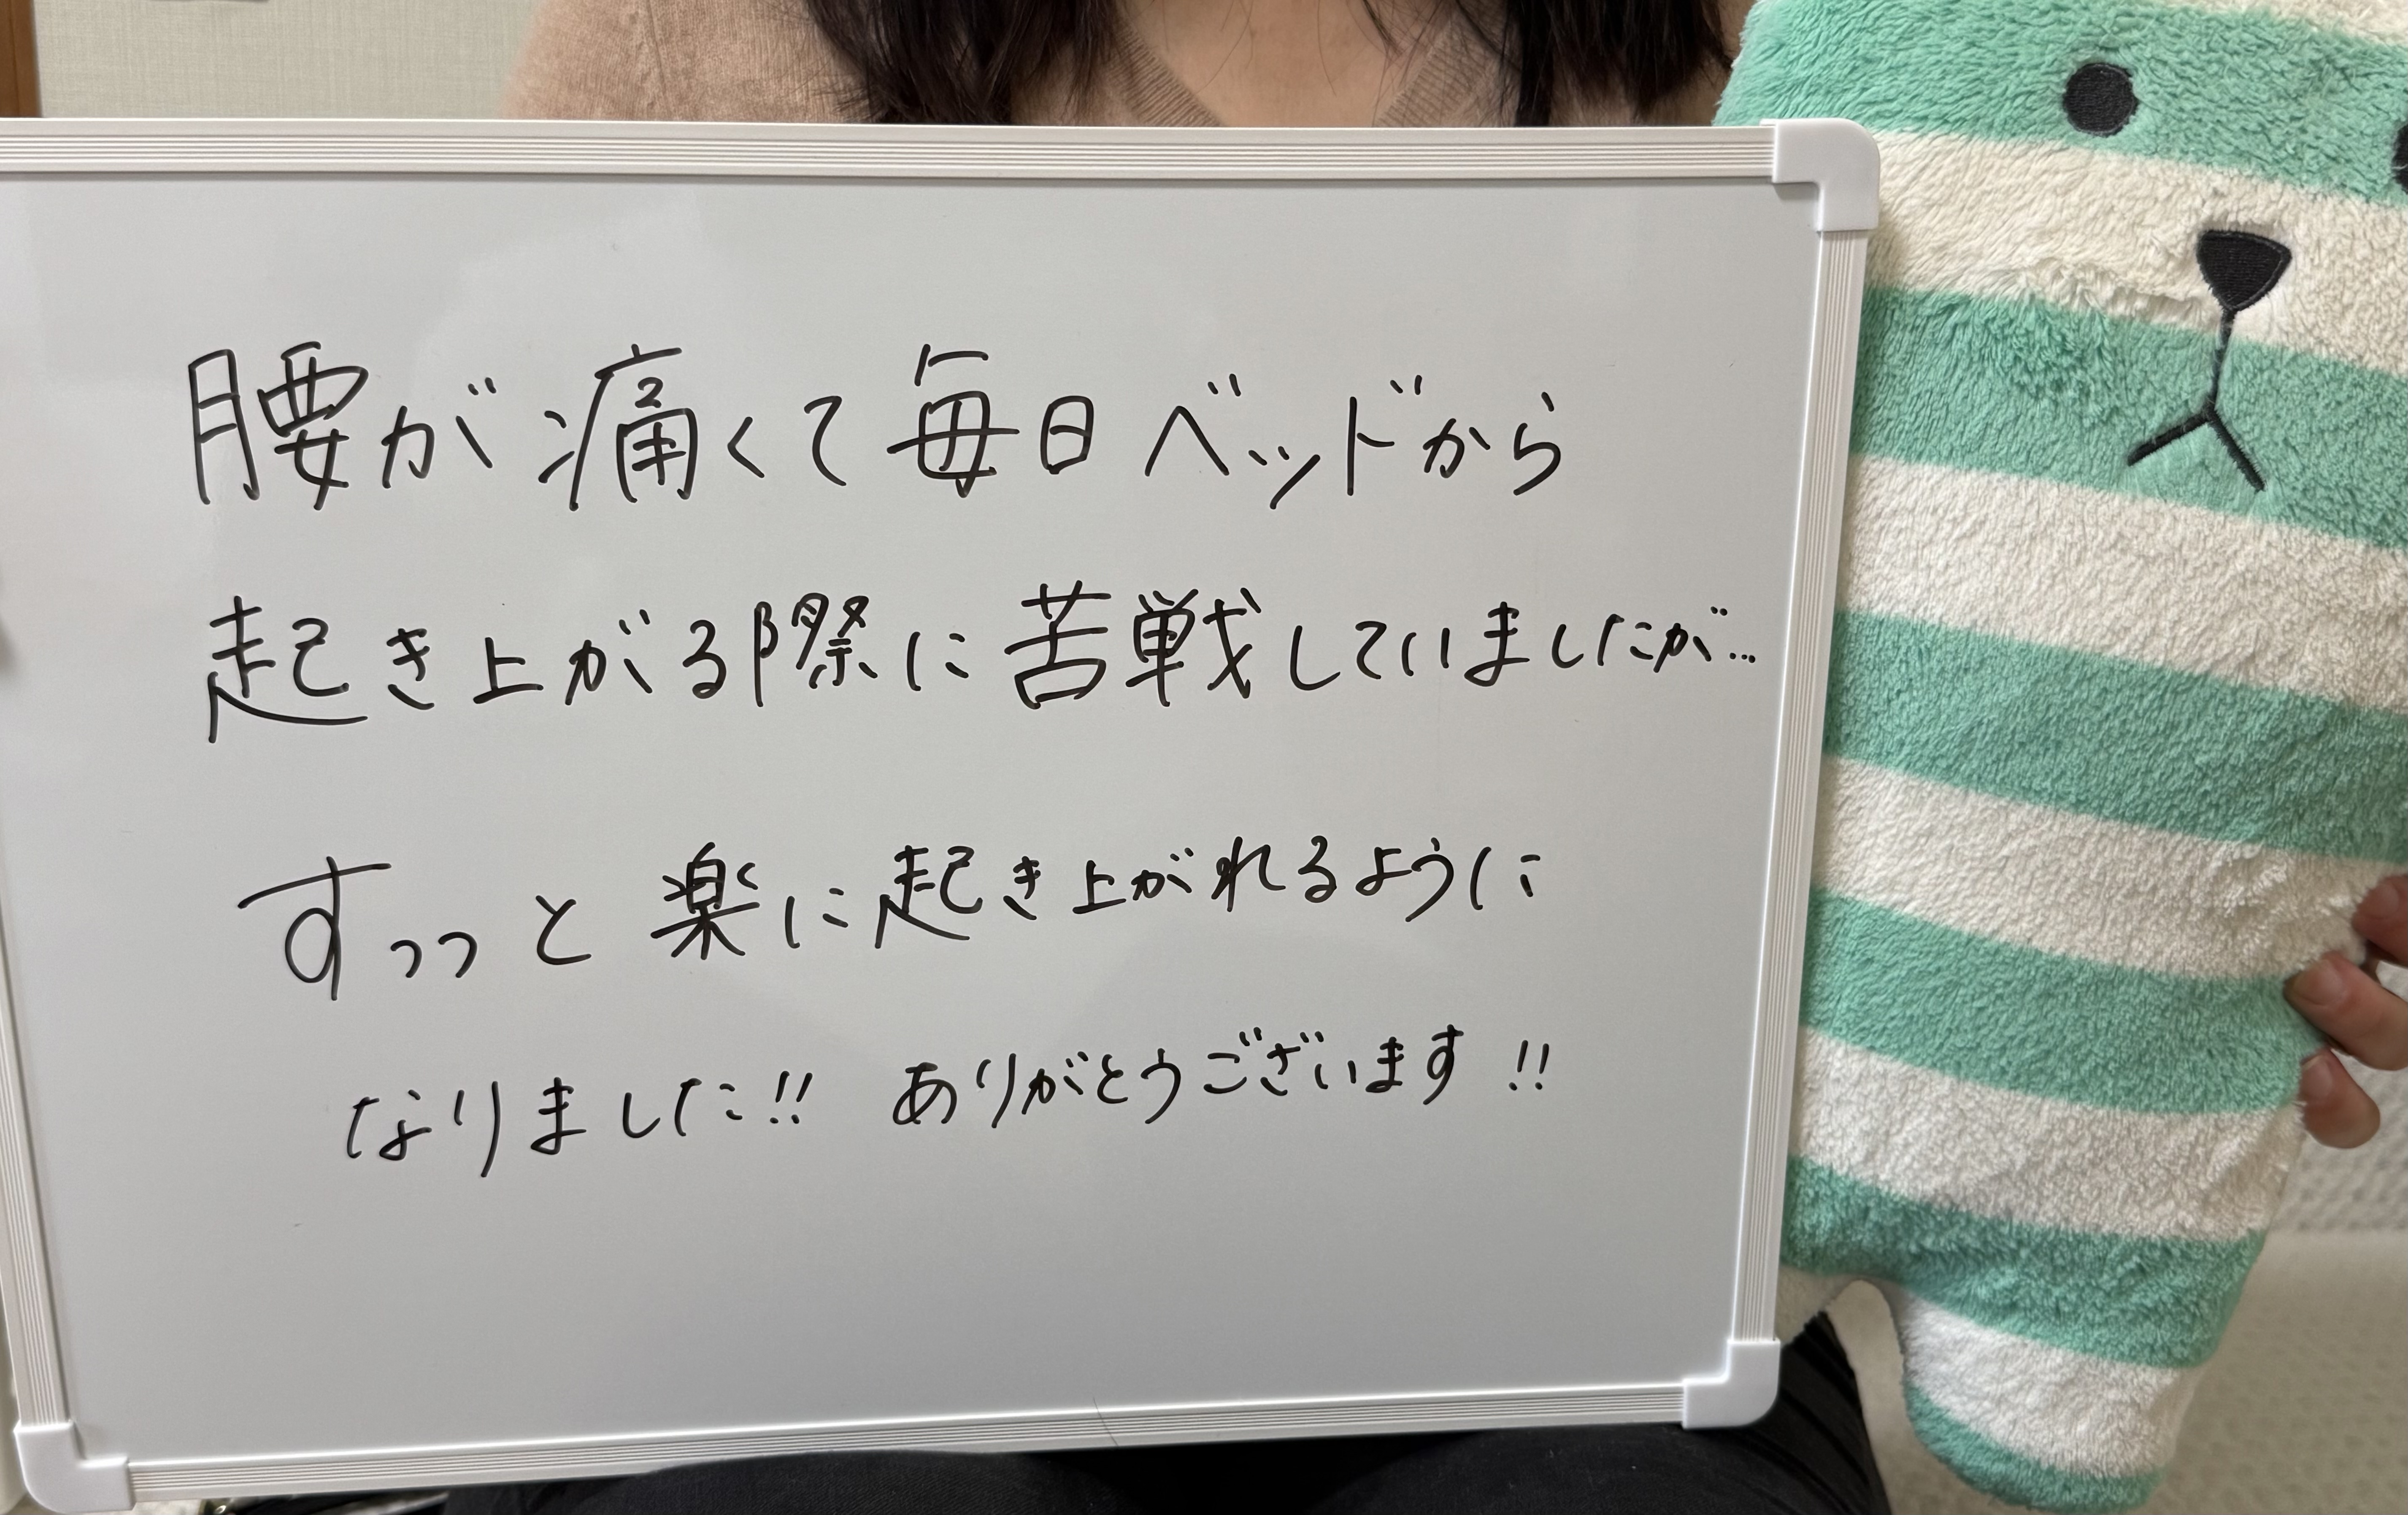 腰が痛くて毎日ベッドから
起き上がる際に苦戦していましたが…
すっっと楽に起き上がれるように
なりました!! ありがとうございます!!